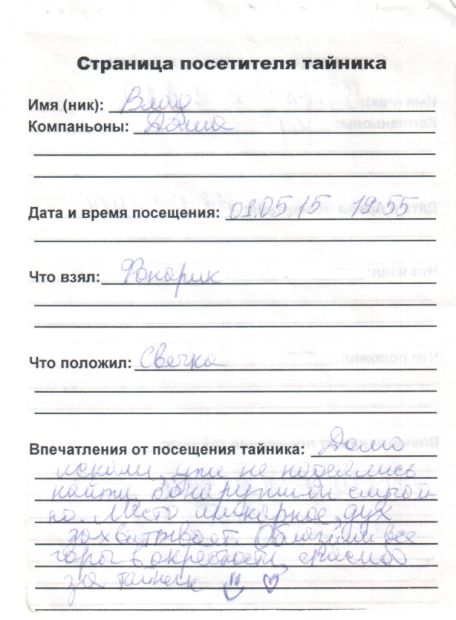 Страница посетителя тайника
Имя (ник): Влад
Компаньоны: Даша
Дата и время посещения: 09.05.15 19:55
Что взял: Фонарик
Что положил: Свечка
Впечатления от посещения тайника: Долго
искали, уже не надеялись
найти, обнаружили случай
но. Место шикарное, дух
захватывает. Облазили все
горы в окрестности, спасибо
за тайник